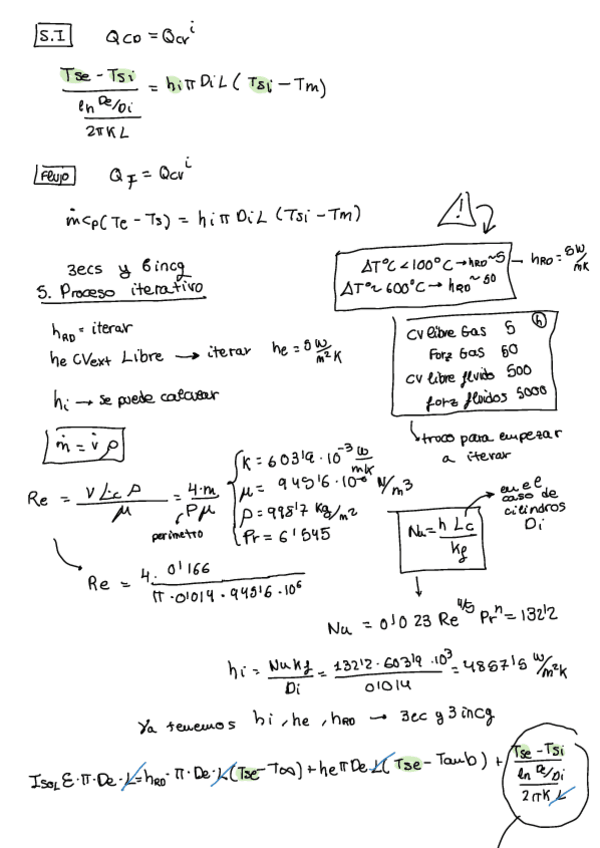 S.I QcD = Qcv^i
(Tse - Tsi) / ((ln De/Di) / (2πKL)) = hiπDiL (Tsi - Tm)
Flujo Q_F = Qcv^i
ṁcp(Te - Ts) = hiπDiL (Tsi - Tm)
3ecs y 6incg
5. Proceso iterativo
ΔT°C <100°C → hRD ~5 → hRD = 5 W/mK
ΔT°~ 600°C → hRD ~50
hRD = iterar
he CVext Libre → iterar he = 5 W/m²K
hi → se puede calcular
(h)
CV libre Gas 5
Forz Gas 50
CV libre fluido 500
forz fluidos 5000
↳ truco para empezar
a iterar
ṁ = v̇ρ
Re = (v Lc ρ) / μ = (4·m) / (Pμ)
perimetro
K = 603'9·10^-3 W/mK
μ = 945'6·10^-6 N/m³
ρ = 998'7 kg/m²
Pr = 6'545
Nu = (h Lc) / Kf
en el
caso de
cilindros
Di
Re = (4·0'166) / (π·0'014·945'6·10^6)
Nu = 0'023 Re^4/5 Pr^n = 132'2
hi = (Nu Kf) / Di = (132'2·603'9·10^3) / 0'014 = 4857'5 W/m²K
Ya tenemos hi, he, hRD → 3ec y 3incg
IsoL ε·π·De·L = hRD·π·De·L (Tse - T∞) + heπDeL (Tse - Tamb) + (Tse - Tsi) / ((ln De/Di) / (2πKL))